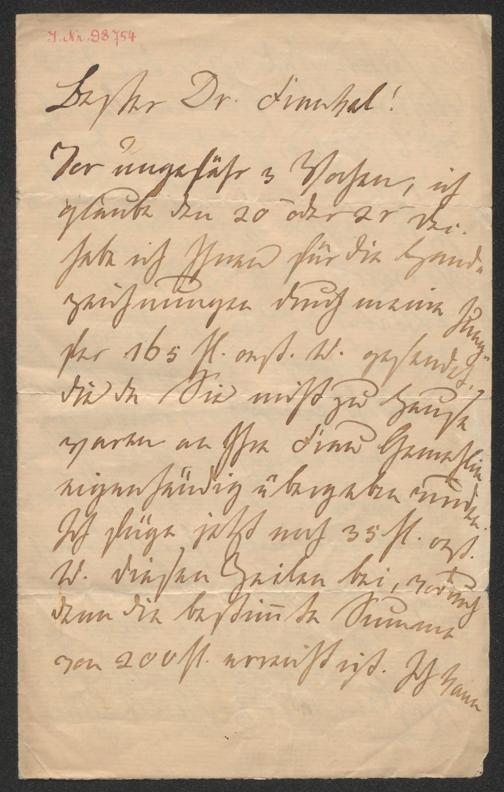 J. Nr. 98754
Bester Dr.
Vor ungefähr 3 Wochen, ich
glaube den 20 oder 21 Dec.
habe ich Ihnen für die Hand-
zeichnungen durch meine
per 165 fl. oest. W. gesendet,
die da Sie nicht zu Hause
waren an Ihre Frau Gemahlin
eigenhändig übergeben wurden.
Ich füge jetzt noch 35 fl. oest.
W. diesen Zeilen bei, wodurch
denn die bestimmte Summe
von 200 fl. erreicht ist. Ich kann